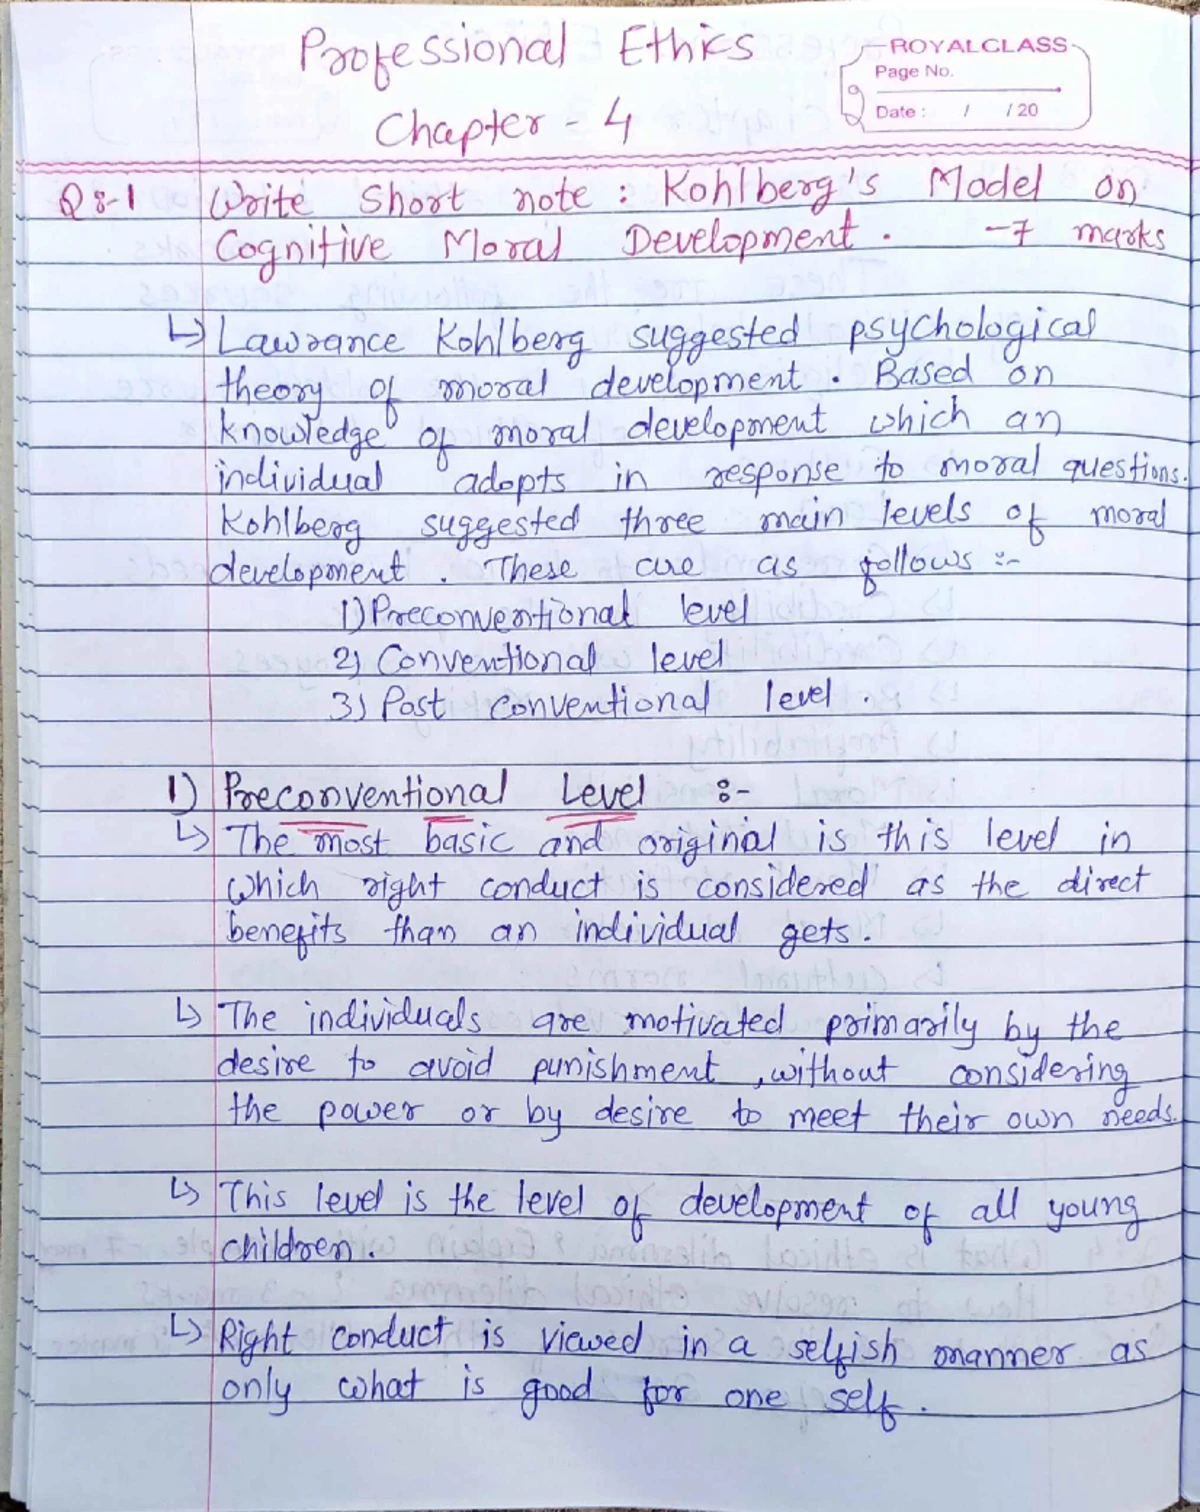 Professional Ethics
ROYALCLASS
Page No.
Date : / / 20
Chapter - 4
Q:-1 Write Short note : Kohlberg's Model on
Cognitive Moral Development. -7 marks
↳ Lawrance Kohlberg suggested psychological
theory of moral development. Based on
knowledge of moral development which an
individual adopts in response to moral questions.
Kohlberg suggested three main levels of moral
development. These are as follows :-
1) Preconventional level
2) Conventional level
3) Post conventional level.
1) Preconventional Level :-
↳ The most basic and original is this level in
which right conduct is considered as the direct
benefits than an individual gets.
↳ The individuals are motivated primarily by the
desire to avoid punishment, without considering
the power or by desire to meet their own needs.
↳ This level is the level of development of all young
children.
↳ Right conduct is viewed in a selfish manner as
only what is good for one self.